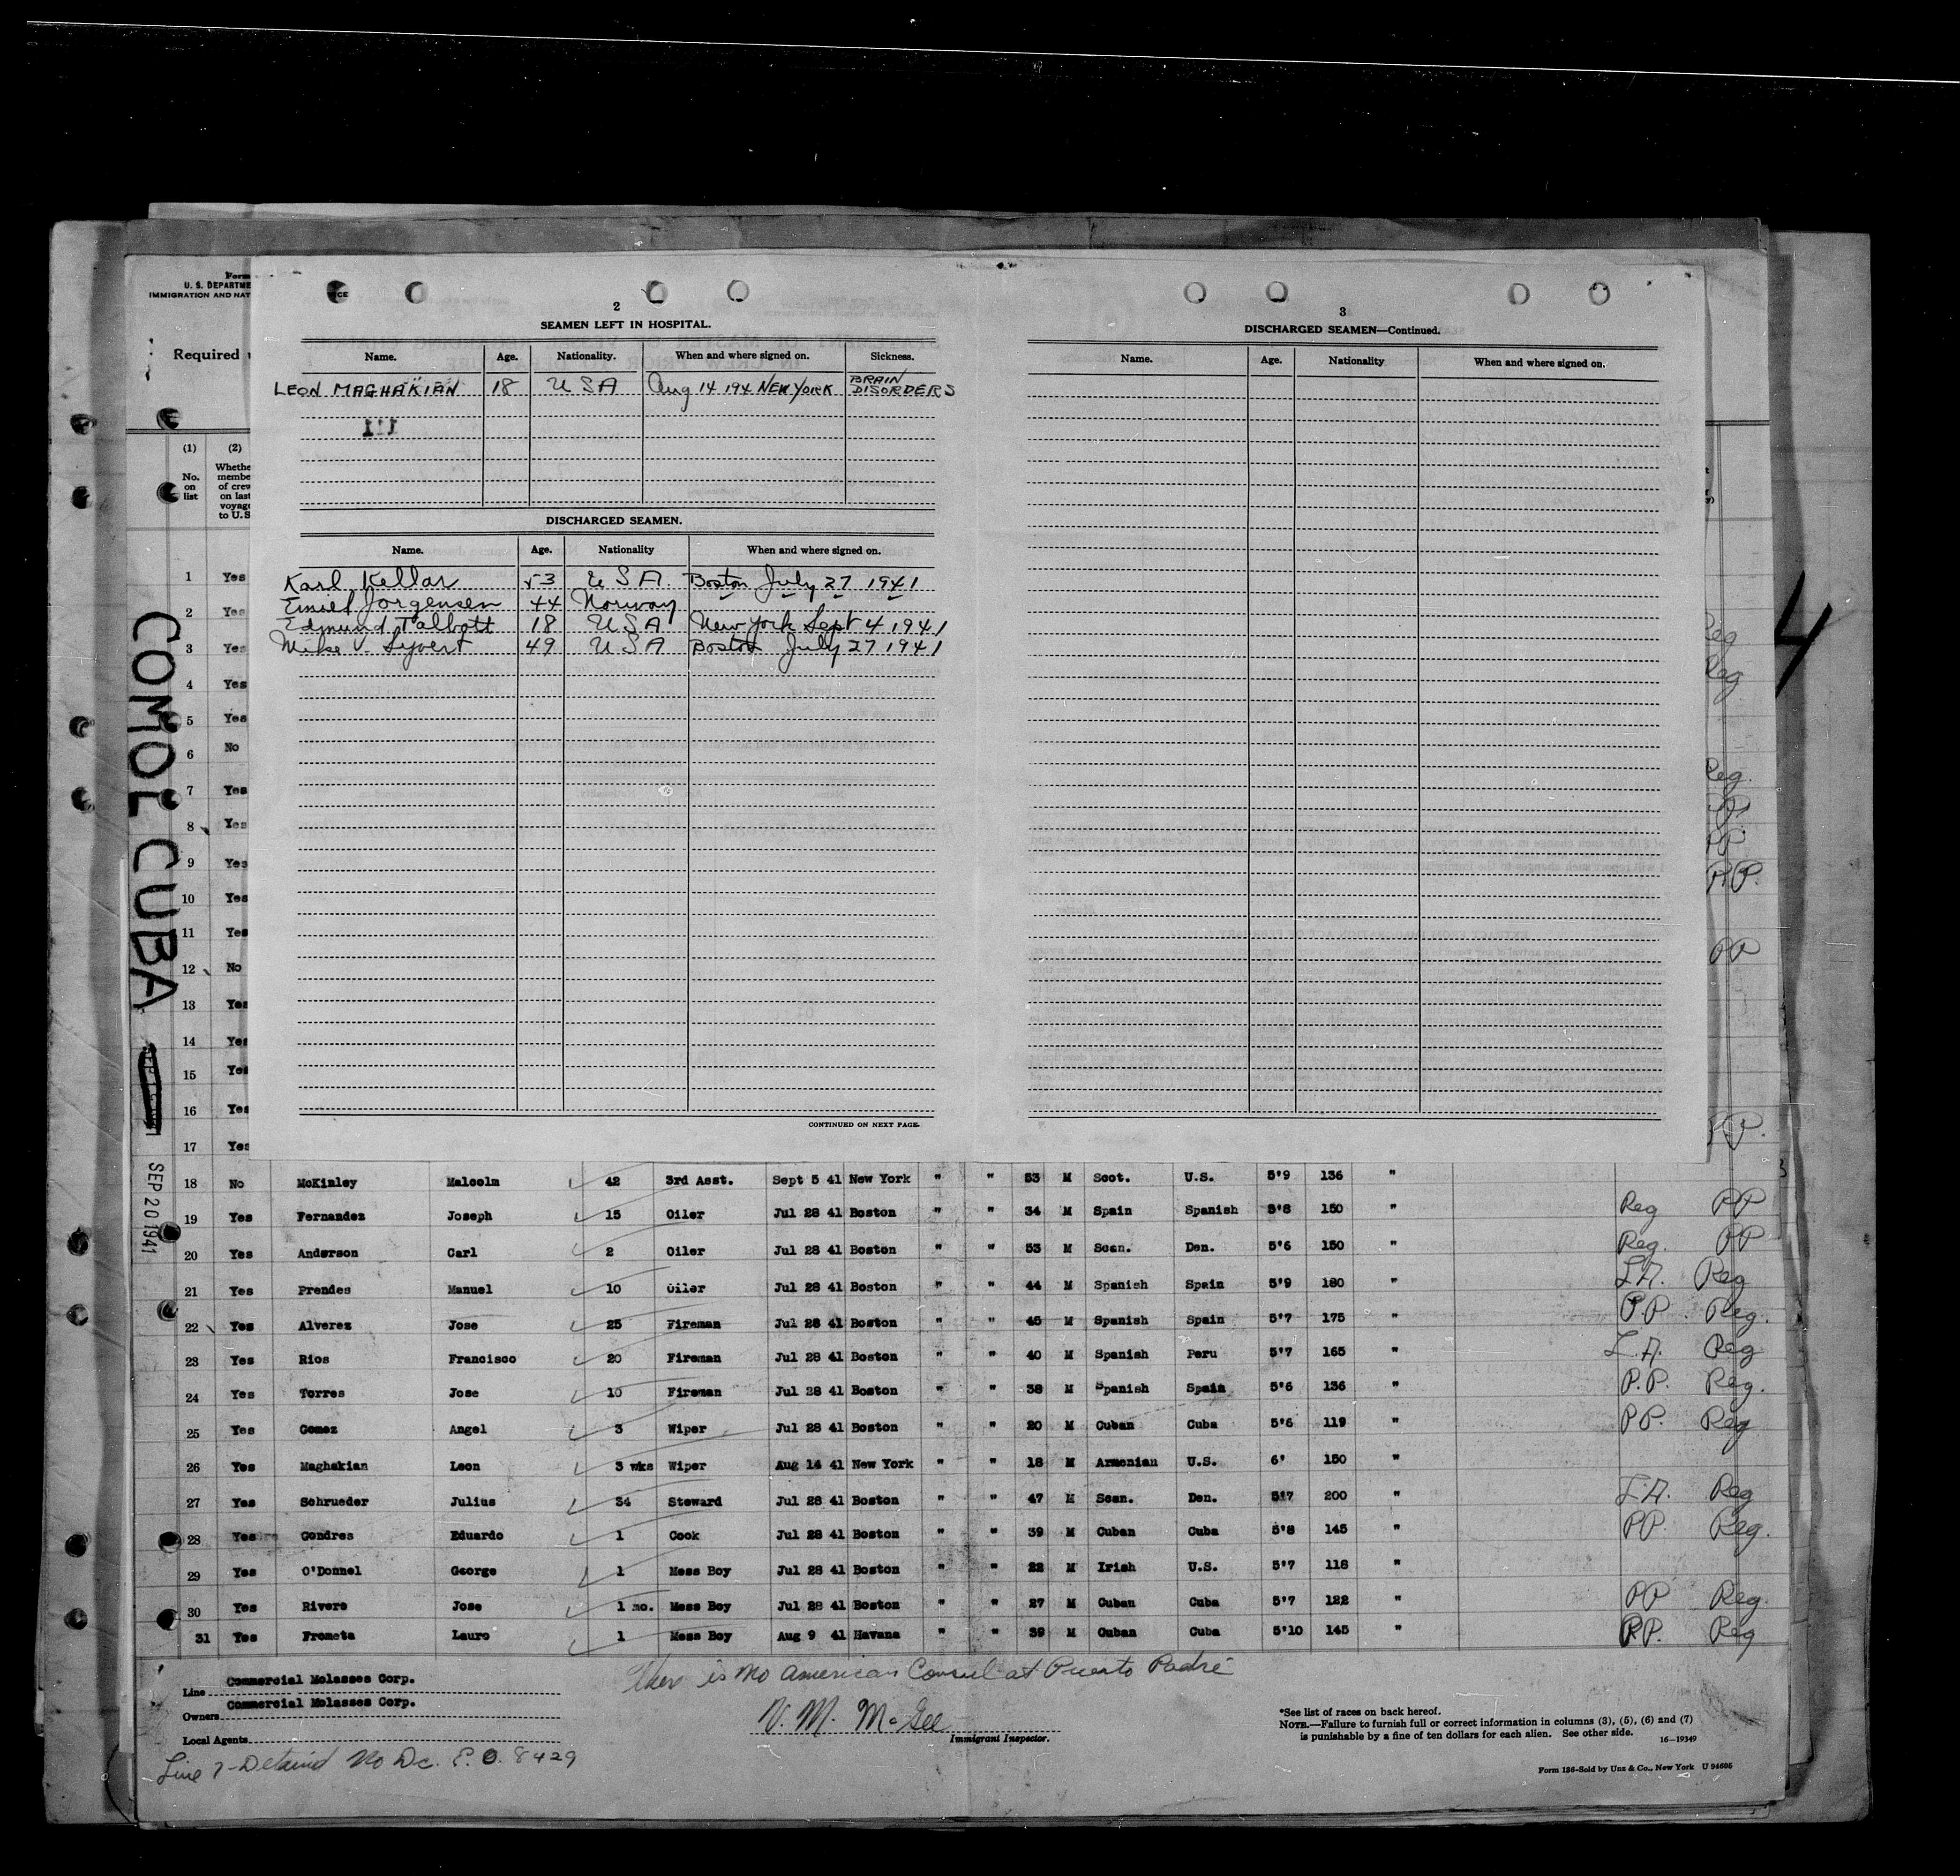 Form
U. S. DEPARTME
IMMIGRATION AND NAT
Required
COMOL CUBA
SEP 20 1941
4
(1) (2)
No. on list
Whethe membe of crew on last voyage to U.S
1 Yes
2 Yes
3 Yes
4 Yes
5 Yes
6 No
7 Yes
8 Yes
9 Yes
10 Yes
11 Yes
12 No
13 Yes
14 Yes
15 Yes
16 Yes
17 Yes
2
SEAMEN LEFT IN HOSPITAL.
Name. Age. Nationality. When and where signed on. Sickness.
LEON MAGHAKIAN 18 USA Aug 14 194 NEW YORK BRAIN DISORDERS
DISCHARGED SEAMEN.
Name. Age. Nationality When and where signed on.
Karl Kellar 53 USA. Boston July 27 1941
Emiel Jorgensen 44 Norway
Edmund Talbott 18 USA New York Sept 4 1941
Mike V. Syvert 49 USA Boston July 27 1941
CONTINUED ON NEXT PAGE.
3
DISCHARGED SEAMEN—Continued.
Name. Age. Nationality When and where signed on.
Reg
Reg
Reg.
PP.
PP
PP.
PP
PP.
18 No McKinley Malcolm 42 3rd Asst. Sept 5 41 New York " " 53 M Scot. U.S. 5'9 136 "
19 Yes Fernandez Joseph 15 Oiler Jul 28 41 Boston " " 34 M Spain Spanish 5'8 150 " Reg PP
20 Yes Anderson Carl 2 Oiler Jul 28 41 Boston " " 53 M Scan. Den. 5'6 150 " Reg. PP
21 Yes Prendes Manuel 10 Oiler Jul 28 41 Boston " " 44 M Spanish Spain 5'9 180 " L.A. Reg
22 Yes Alverez Jose 25 Fireman Jul 28 41 Boston " " 45 M Spanish Spain 5'7 175 " P.P. Reg.
23 Yes Rios Francisco 20 Fireman Jul 28 41 Boston " " 40 M Spanish Peru 5'7 165 " L.A. Reg
24 Yes Torres Jose 10 Fireman Jul 28 41 Boston " " 38 M Spanish Spain 5'6 136 " P.P. Reg.
25 Yes Gomez Angel 3 Wiper Jul 28 41 Boston " " 20 M Cuban Cuba 5'6 119 " PP. Reg
26 Yes Maghakian Leon 3 wks Wiper Aug 14 41 New York " " 18 M Armenian U.S. 6' 150 "
27 Yes Schrueder Julius 34 Steward Jul 28 41 Boston " " 47 M Scan. Den. 5'7 200 " L.A. Reg
28 Yes Gondres Eduardo 1 Cook Jul 28 41 Boston " " 39 M Cuban Cuba 5'8 145 " PP. Reg.
29 Yes O'Donnel George 1 Mess Boy Jul 28 41 Boston " " 22 M Irish U.S. 5'7 118 "
30 Yes Rivero Jose 1 mo. Mess Boy Jul 28 41 Boston " " 27 M Cuban Cuba 5'7 122 " PP Reg.
31 Yes Frometa Lauro 1 Mess Boy Aug 9 41 Havana " " 39 M Cuban Cuba 5'10 145 " PP. Reg
Line Commercial Molasses Corp.
Owners Commercial Molasses Corp.
Local Agents
Line 7-Detaind No Dc. E.O. 8429
Ther is no American Consul at Puerto Padre
V. M. McGee
Immigrant Inspector.
*See list of races on back hereof.
NOTE.—Failure to furnish full or correct information in columns (3), (5), (6) and (7)
is punishable by a fine of ten dollars for each alien. See other side.
16—19349
Form 136-Sold by Unz & Co., New York U 94605